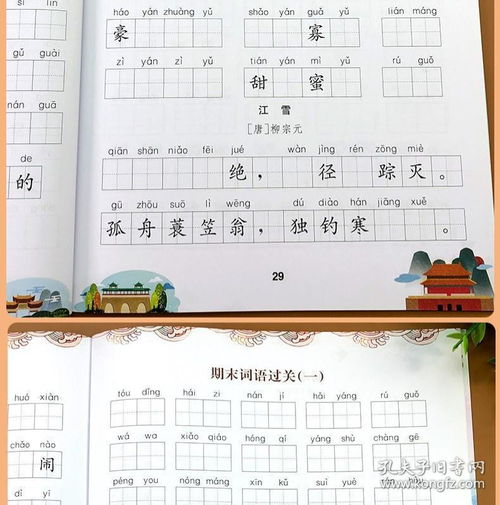 sī lín
gǔ guài
nán guā
de
的
háo yán zhuàng yǔ
豪
shǎo yán guǎ yǔ
寡
lián máng
zì yán zì yǔ
tián yán mì yǔ
甜 蜜
rú guǒ
江 雪
[唐]柳宗元
qiān shān niǎo fēi jué wàn jìng rén zōng miè
绝， 径 踪 灭 。
gū zhōu suō lì wēng dú diào hán jiāng xuě
孤 舟 蓑 笠 翁 ， 独 钓 寒 。
29
huó xiàn
chǎo nào
闹
dì yī
期末词语过关(一)
tóu dǐng hái zi nán jí hǎi yáng rú guǒ
wá wa xiǎo qiáo hóng qí yáng shù chàng gē
péng you nóng máng xīn kǔ suī
孔夫子旧书网
www.kongfz.com